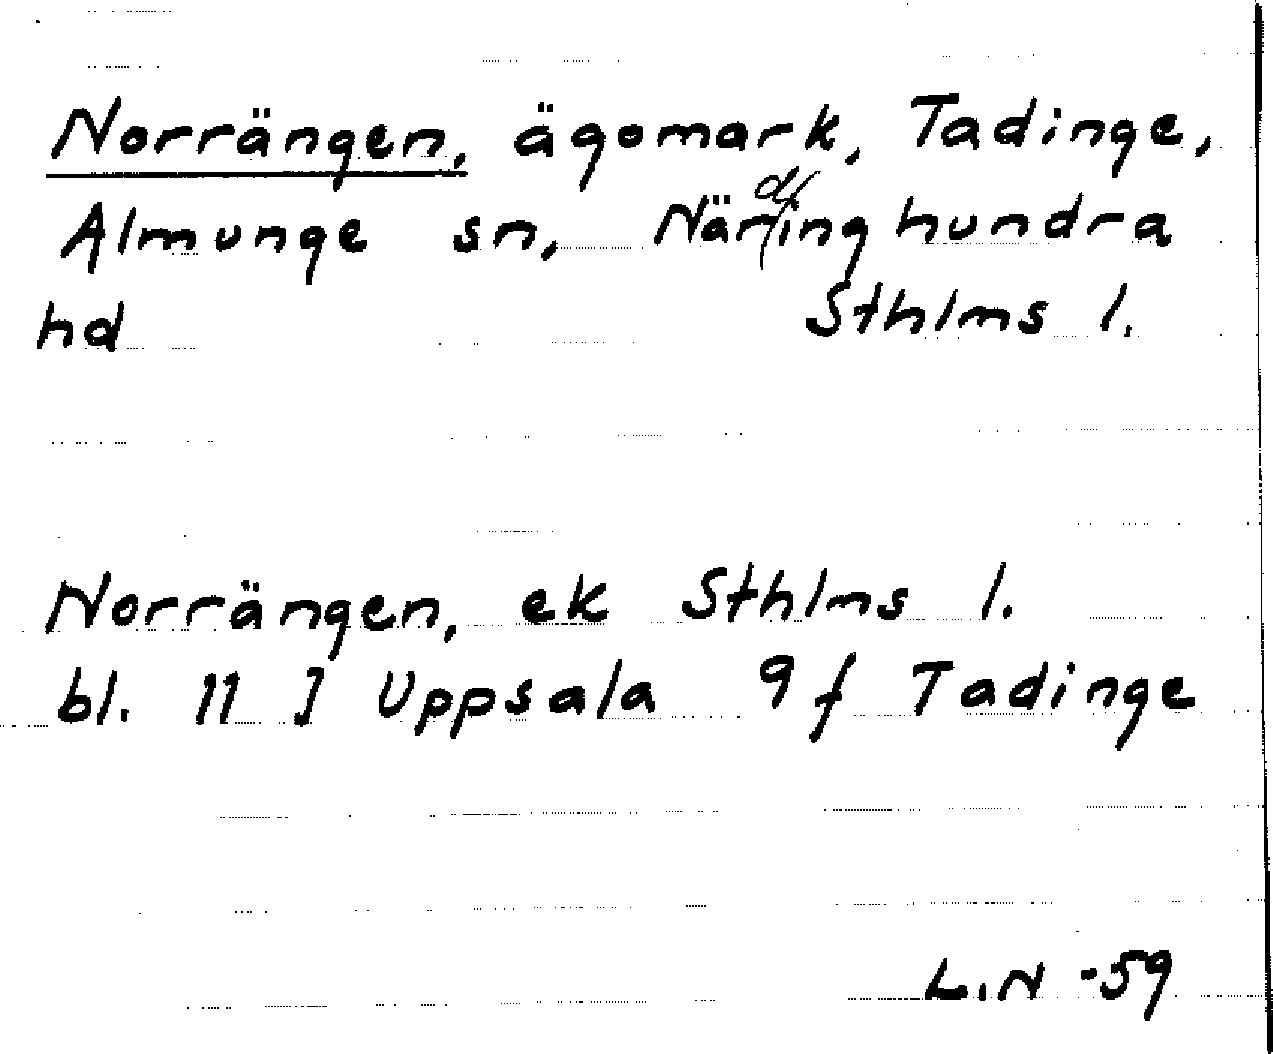 Norrängen, ägomark, Tadinge,
Almunge sn, Närdinghundra
hd Sthlms l.
Norrängen, ek Sthlms l.
bl. 11 I Uppsala 9f Tadinge
L.N -59